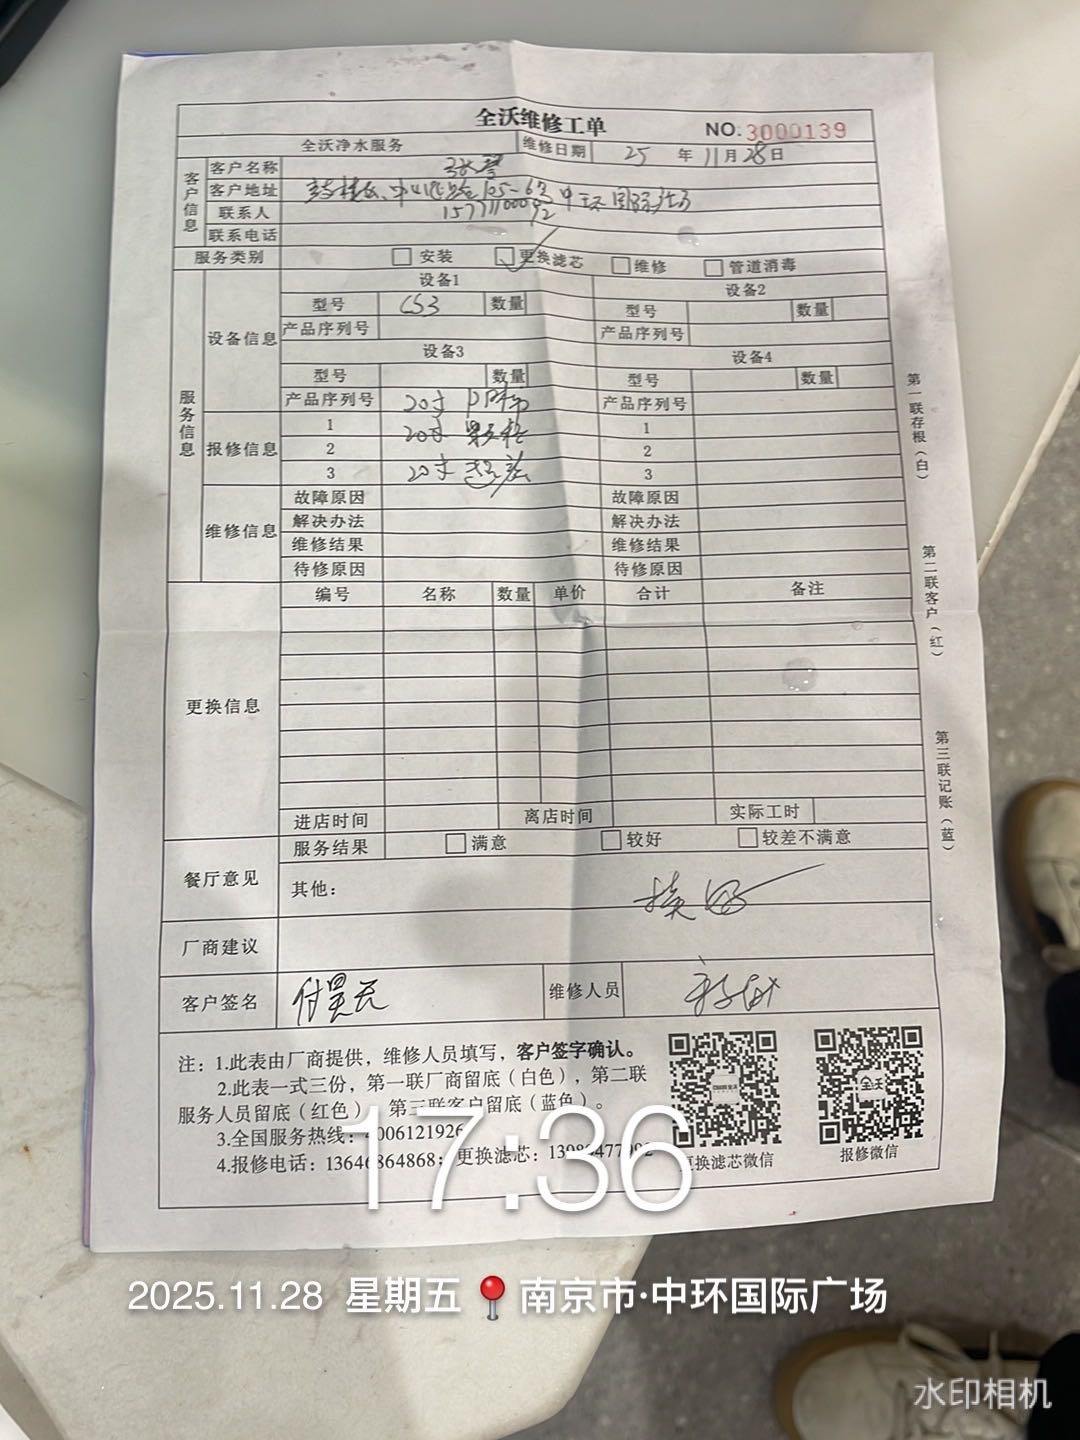 全沃维修工单
NO:3000139
全沃净水服务 维修日期 25 年 11 月 28 日
客户信息
客户名称
客户地址 105-63 中环国际
联系人
联系电话
服务类别 安装 更换滤芯 维修 管道消毒
服务信息
设备信息
设备1 设备2
型号 CS3 数量 型号 数量
产品序列号 产品序列号
设备3 设备4
型号 数量 型号 数量
产品序列号 20寸 产品序列号
报修信息
1 20寸 1
2 2
3 20寸 3
维修信息
故障原因 故障原因
解决办法 解决办法
维修结果 维修结果
待修原因 待修原因
更换信息
编号 名称 数量 单价 合计 备注
进店时间 离店时间 实际工时
服务结果 满意 较好 较差不满意
餐厅意见
其他： 换好
厂商建议
客户签名 付昊天 维修人员
注：1.此表由厂商提供，维修人员填写，客户签字确认。
2.此表一式三份，第一联厂商留底（白色），第二联
服务人员留底（红色），第三联客户留底（蓝色）。
3.全国服务热线：4006121926
4.报修电话：13646864868；更换滤芯：
更换滤芯微信
报修微信
全沃
第一联存根（白）
第二联客户（红）
第三联记账（蓝）
17:36
2025.11.28 星期五 南京市·中环国际广场
水印相机